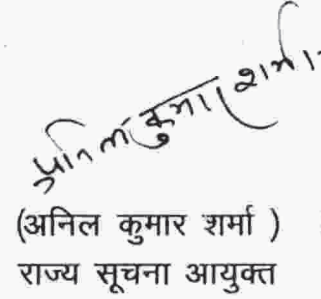 अनिल कुमार शर्मा
(अनिल कुमार शर्मा )
राज्य सूचना आयुक्त